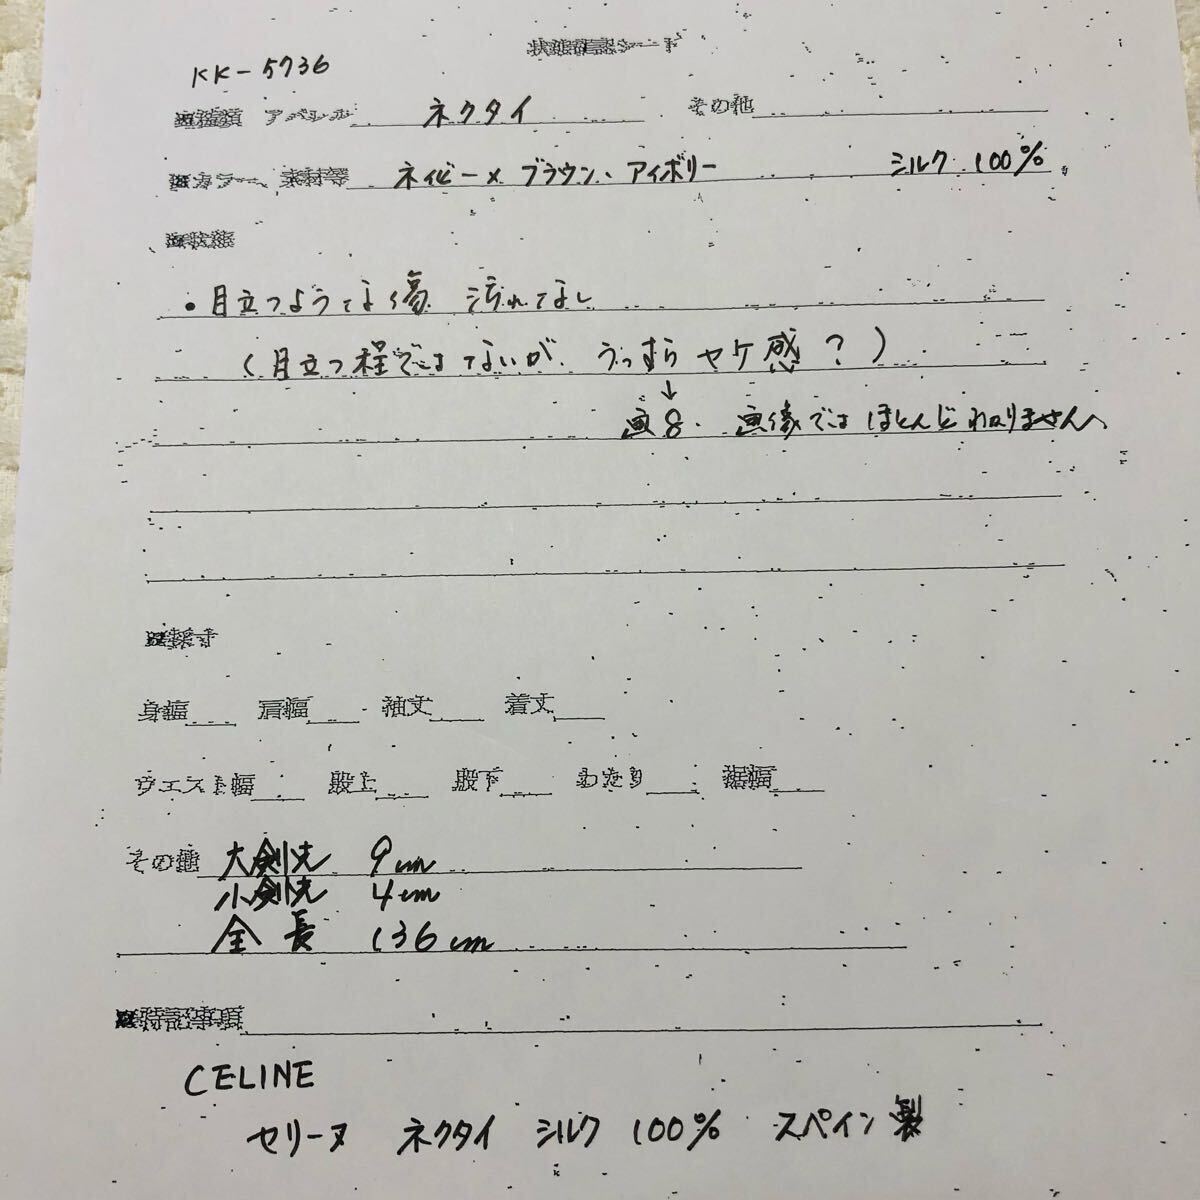 状態確認シート
KK-5736
■種類 アパレル ネクタイ その他
■カラー、素材等 ネイビー×ブラウン、アイボリー シルク 100%
■状態
・目立つような傷 汚れなし
(目立つ程ではないが、うっすらヤケ感?)
↓
画8. 画像ではほとんどわかりません
■採寸
身幅 肩幅 袖丈 着丈
ウエスト幅 股上 股下 わたり 裾幅
その他 大剣先 9cm
小剣先 4cm
全長 136cm
■特記事項
CELINE
セリーヌ ネクタイ シルク 100% スペイン製